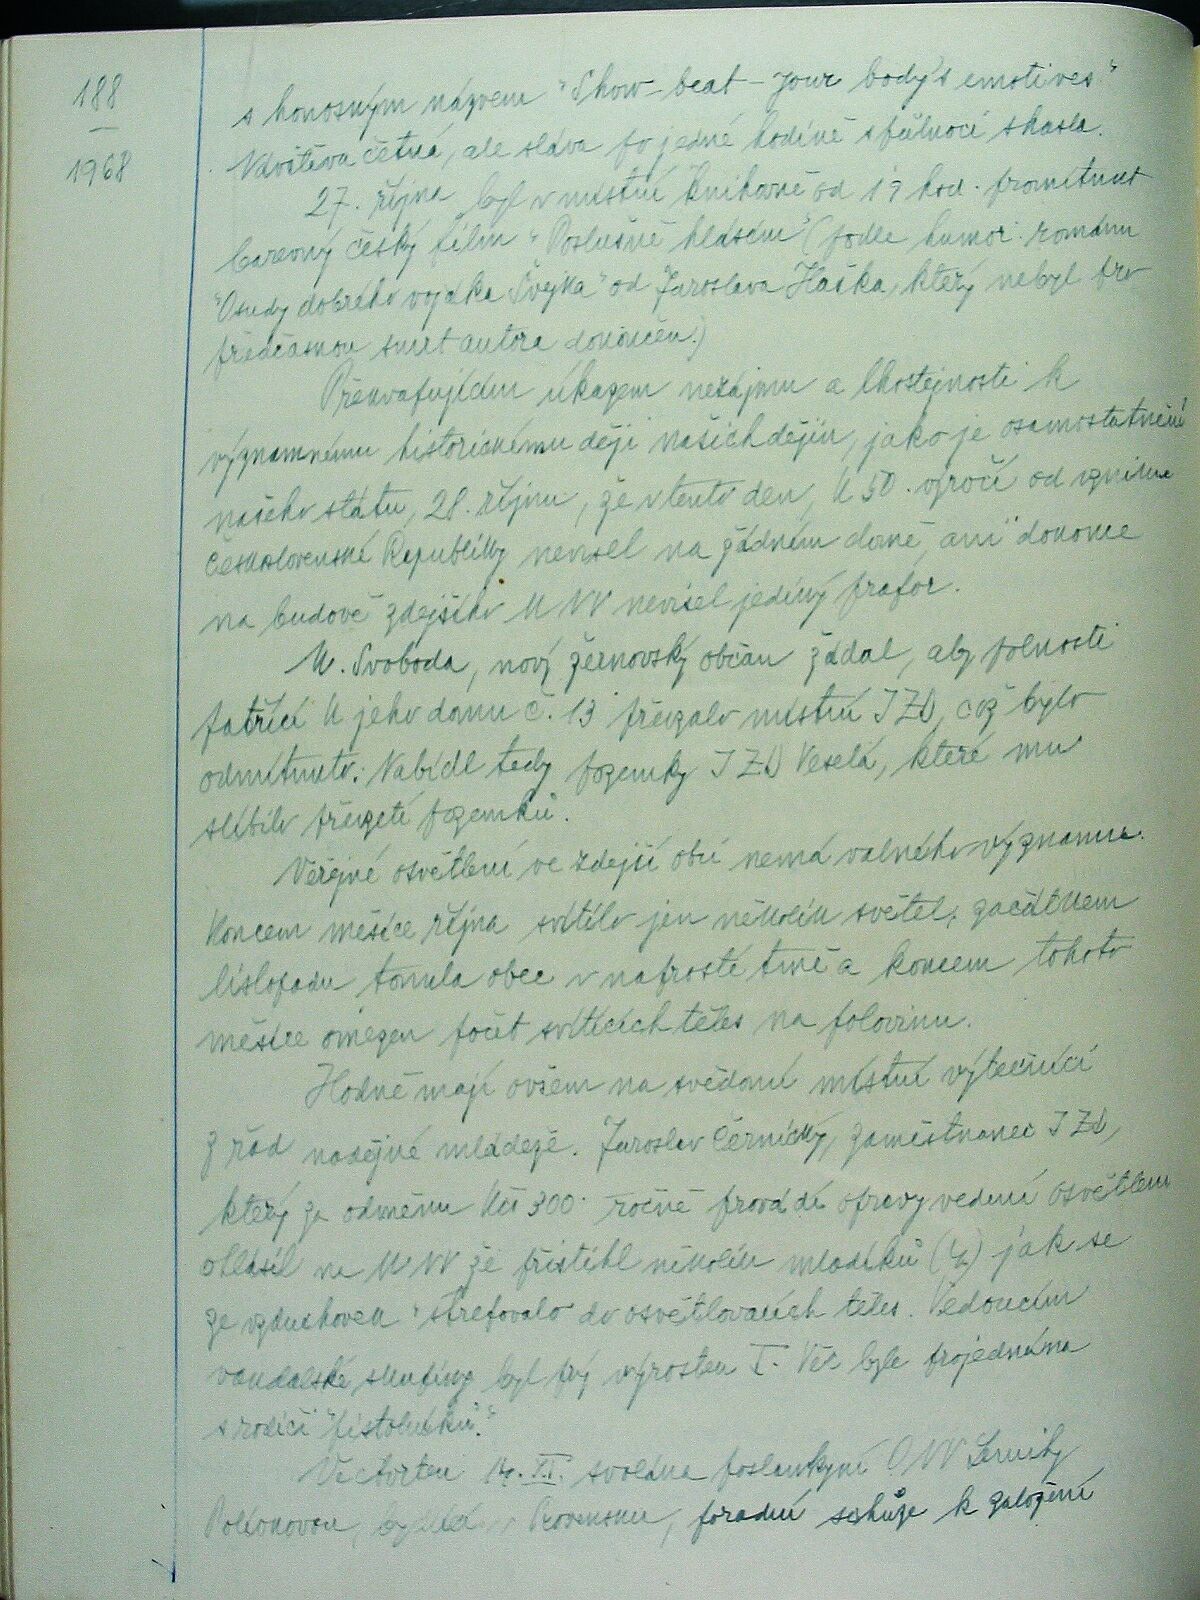 188
1968
s honosným názvem "Show-beat-your body's emotives"
Návštěva četná, ale sláva po jedné hodině s půlnocí shasla.
27. října byl v místní knihovně od 19 hod. promítnut
barevný český film "Poslušně hlásím" (podle humor. románu
"Osudy dobrého vojáka Švejka" od Jaroslava Haška, který nebyl pro
předčasnou smrt autora dokončen.)
Překvapujícím úkazem nezájmu a lhostejnosti k
významnému historickému ději našich dějin, jako je osamostatnění
našeho státu, 28. říjnu, že v tento den, k 50. výročí od vzniku
Československé Republiky nevisel na žádném domě ani dokonce
na budově zdejšího MNV nevisel jediný prapor.
M. Svoboda, nový žernovský občan žádal, aby polnosti
patřící k jeho domu č. 13 převzalo místní JZD, což bylo
odmítnuto. Nabídl tedy pozemky JZD Veselá, které mu
slíbilo převzetí pozemků.
Veřejné osvětlení ve zdejší obci nemá valného významu.
Koncem měsíce října svítilo jen několik světel, začátkem
listopadu tonula obec v naprosté tmě a koncem tohoto
měsíce omezen počet svítících těles na polovinu.
Hodně mají ovšem na svědomí místní výtečníci
z řad nadějné mládeže. Jaroslav Černický, zaměstnanec JZD,
který za odměnu Kčs 300 ročně provádí opravy vedení osvětlení
ohlásil na MNV že přistihl několik mladíků (4) jak se
ze vzduchovek "strefovalo do osvětlovacích těles. Vedoucím
vandalské skupiny byl prý výrostek T. Věc byla projednána
s rodiči "pistolníků".
Ve čtvrtek 14. XI. svolána poslankyní ONV
v Rovensku, poradní schůze k založení